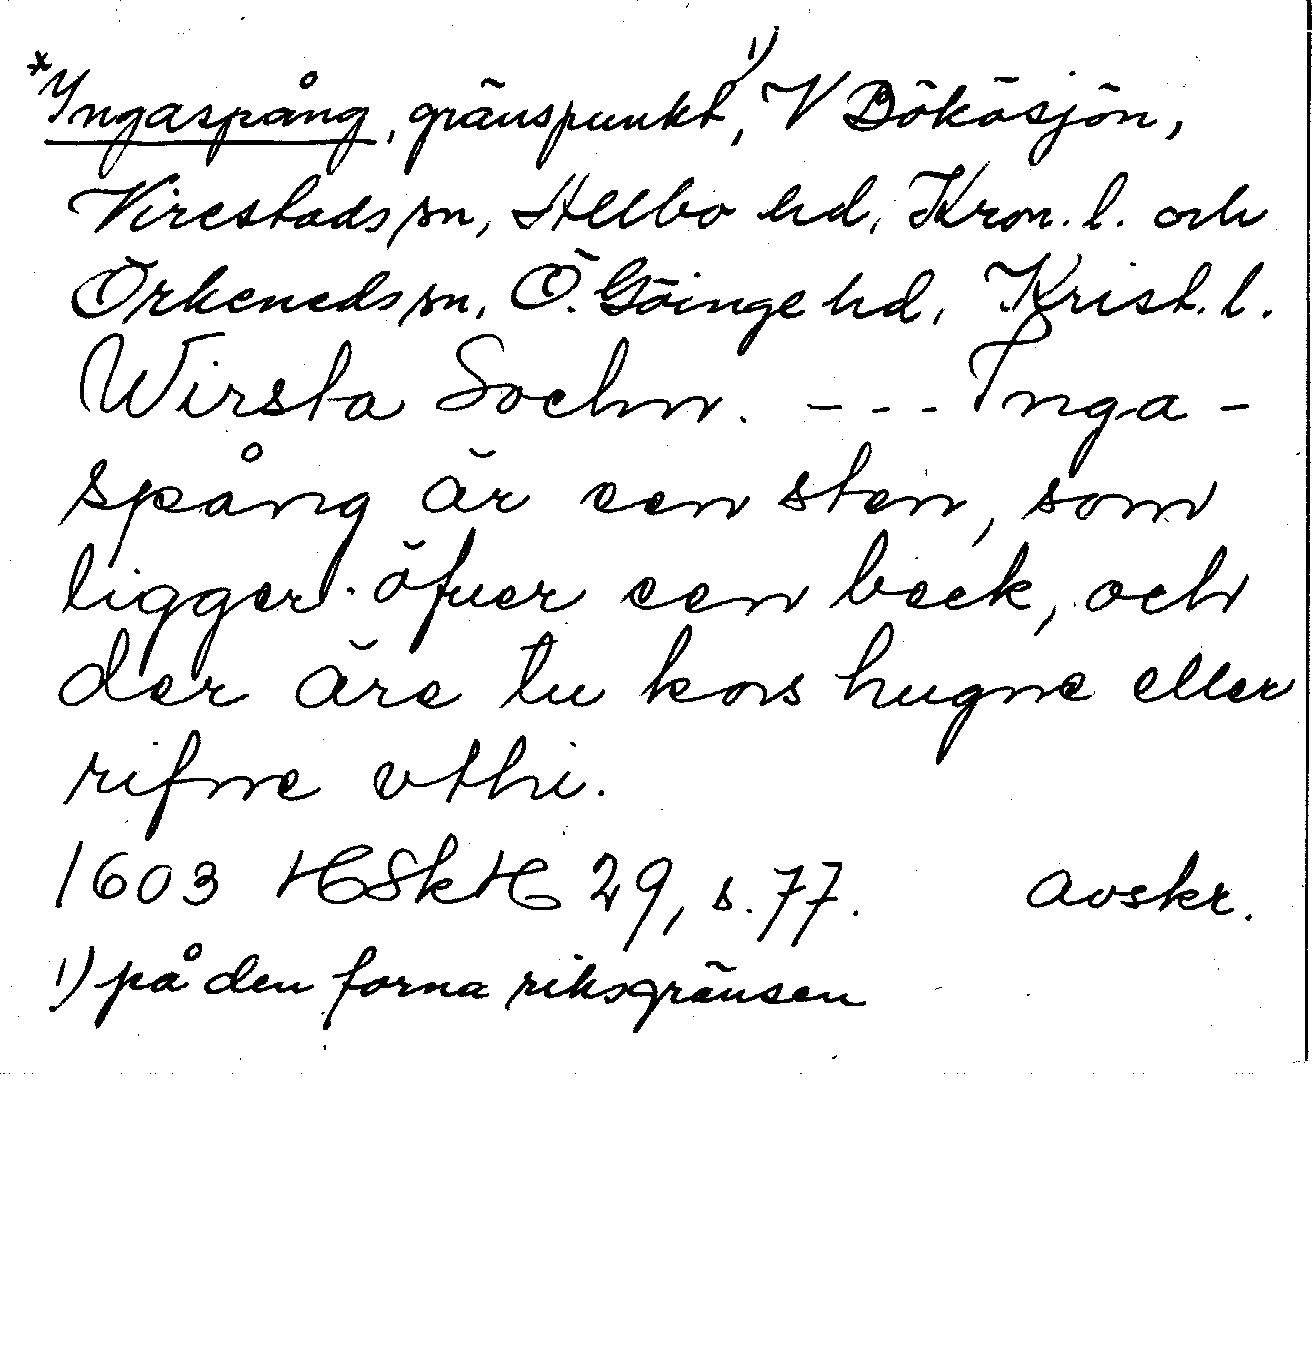 *Yngaspång, gränspunkt¹⁾, V Bökösjön,
Virestads sn, Allbo hd, Kron. l. och
Örkeneds sn, Ö. Göinge hd, Krist. l.
Wirsta Sochn. --- Inga-
spång är een sten, som
ligger öfuer een beck, och
der äre tu kors hugne eller
rifne vthi.
1603 HSkH 29, s. 77. avskr.
1) på den forna riksgränsen